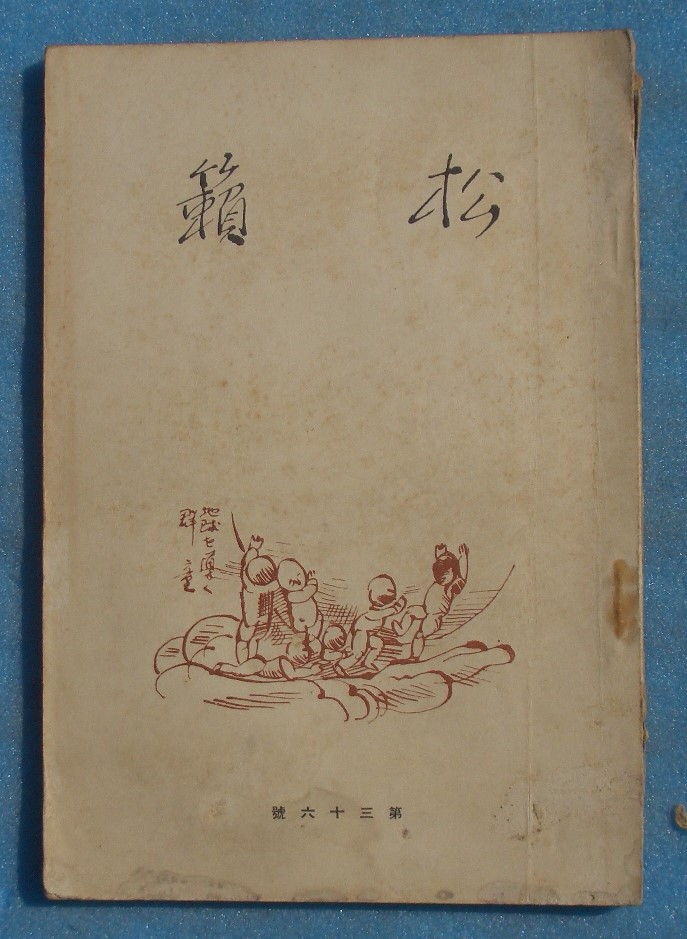 松籟
地球を導く
群童
第三十六號